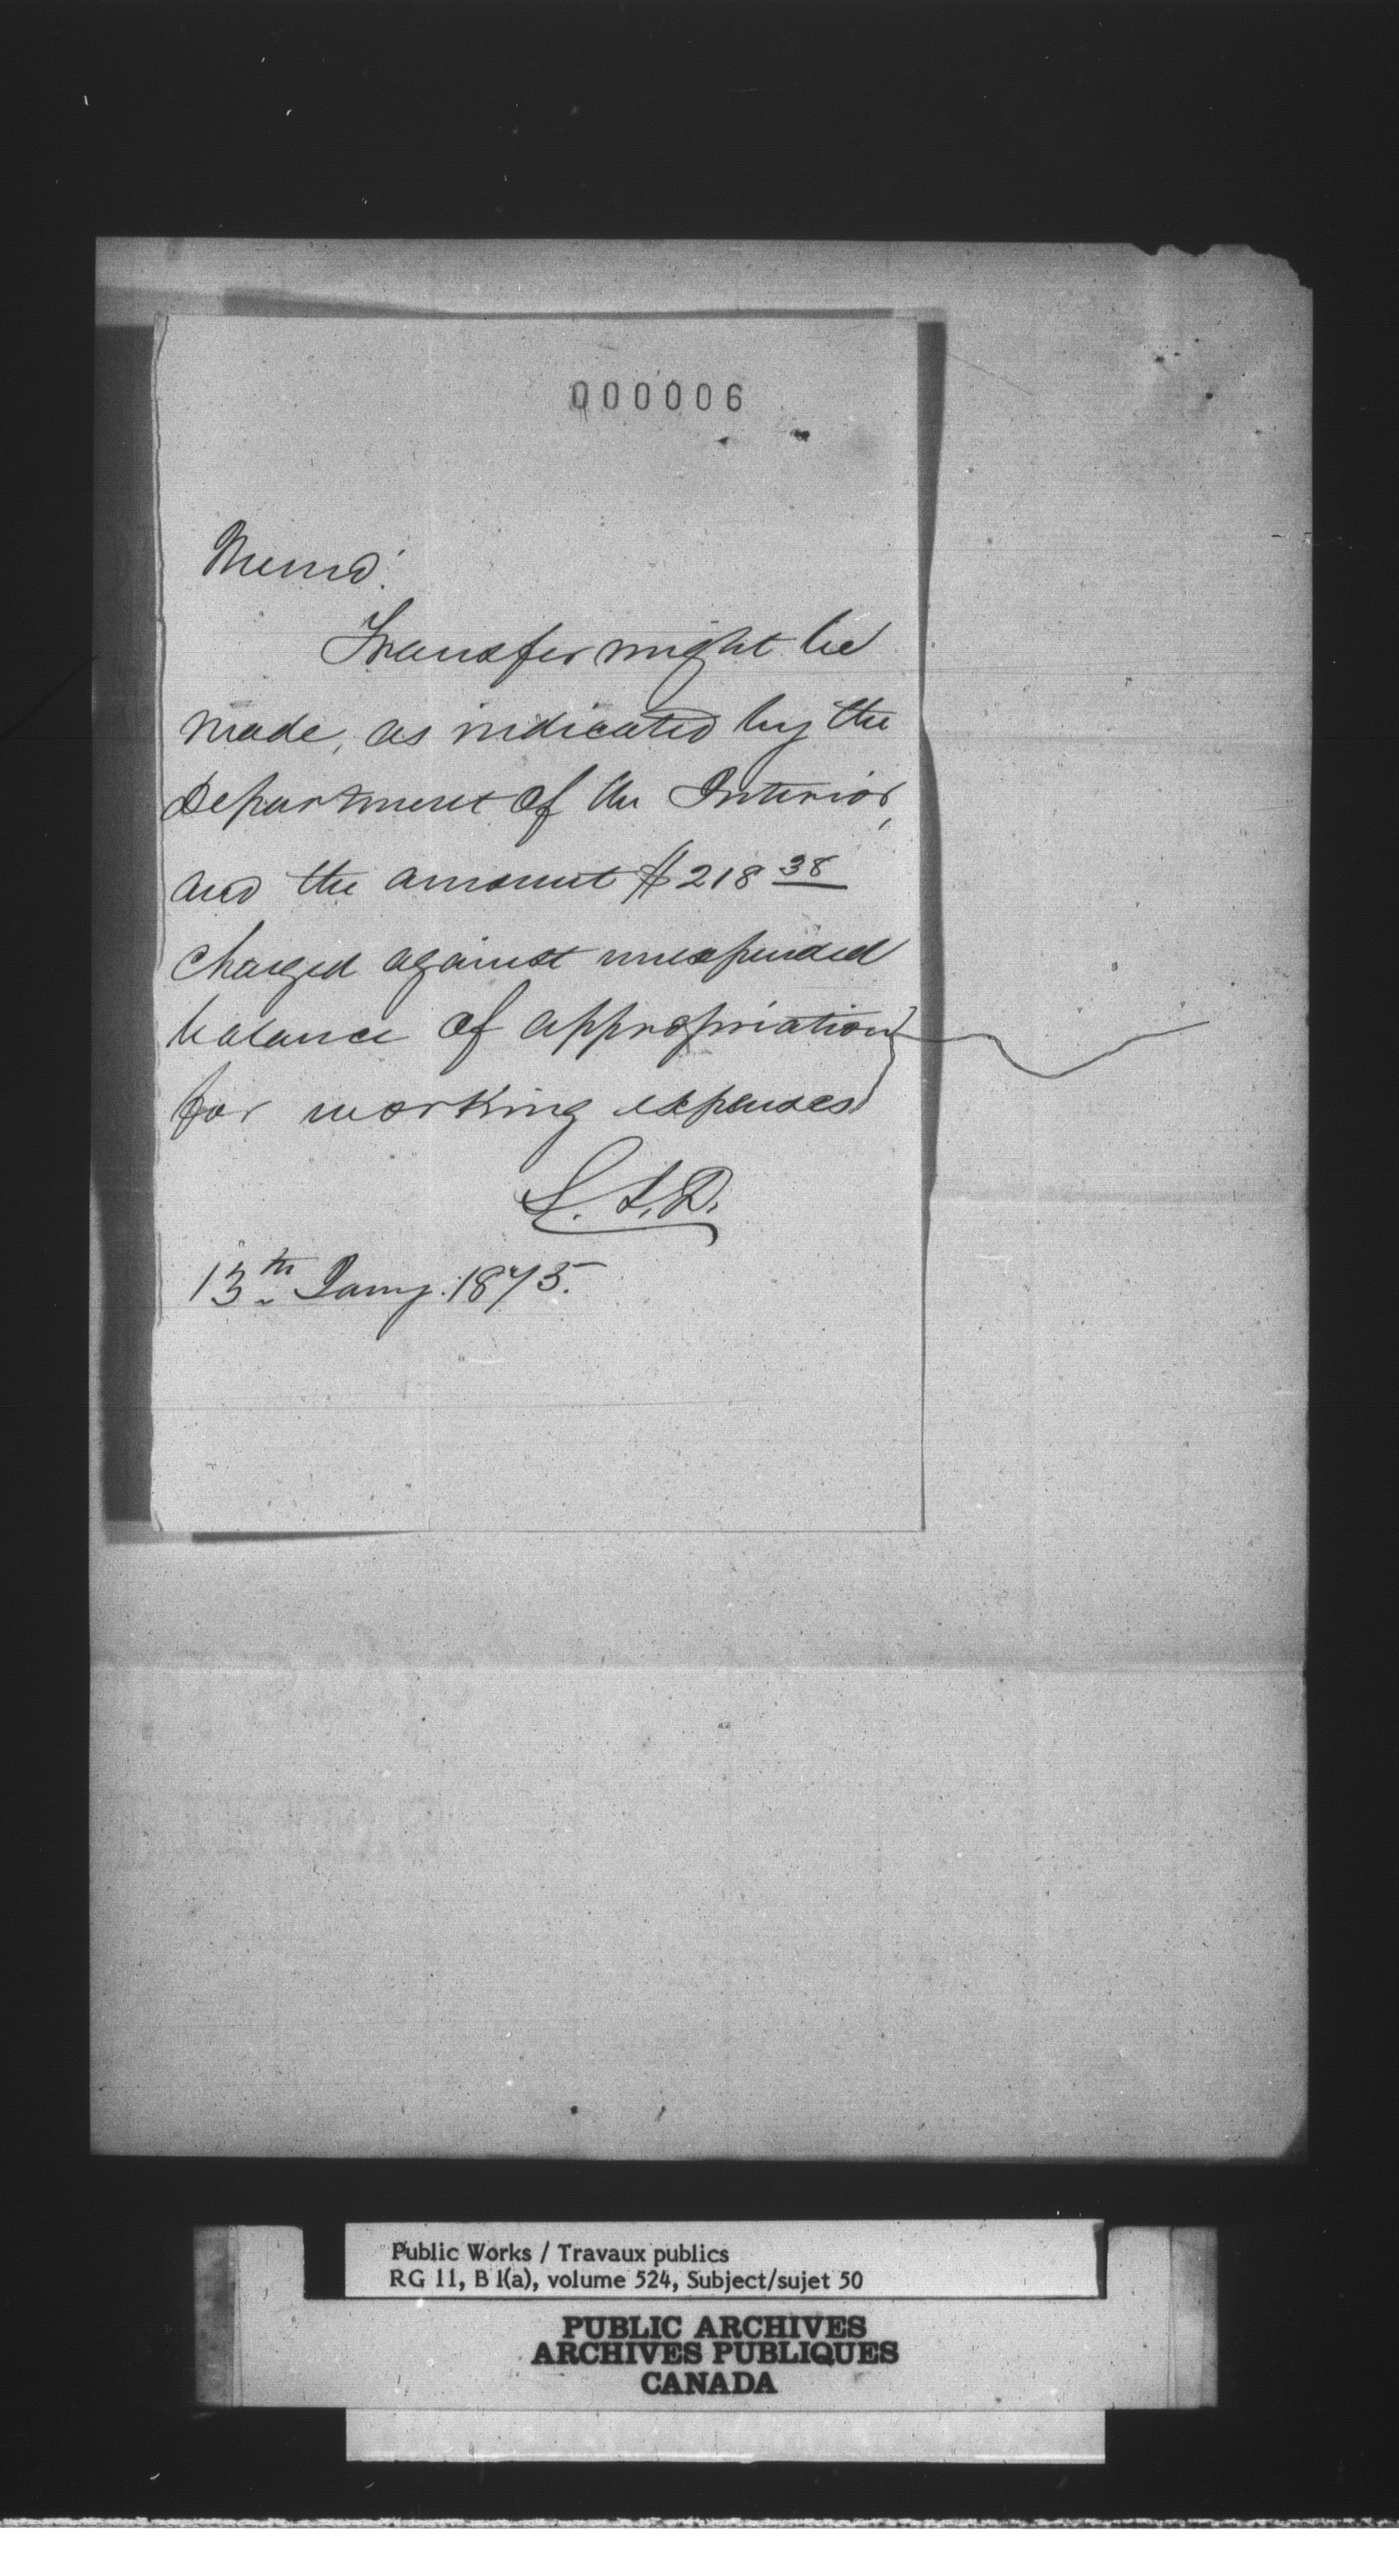 000006
Memo:
Transfer might be
made, as indicated by the
Department of the Interior,
and the amount $218 38
charged against unexpended
balance of appropriation
for working expenses
13th Jany. 1875.
Public Works / Travaux publics
RG 11, B 1(a), volume 524, Subject/sujet 50
PUBLIC ARCHIVES
ARCHIVES PUBLIQUES
CANADA